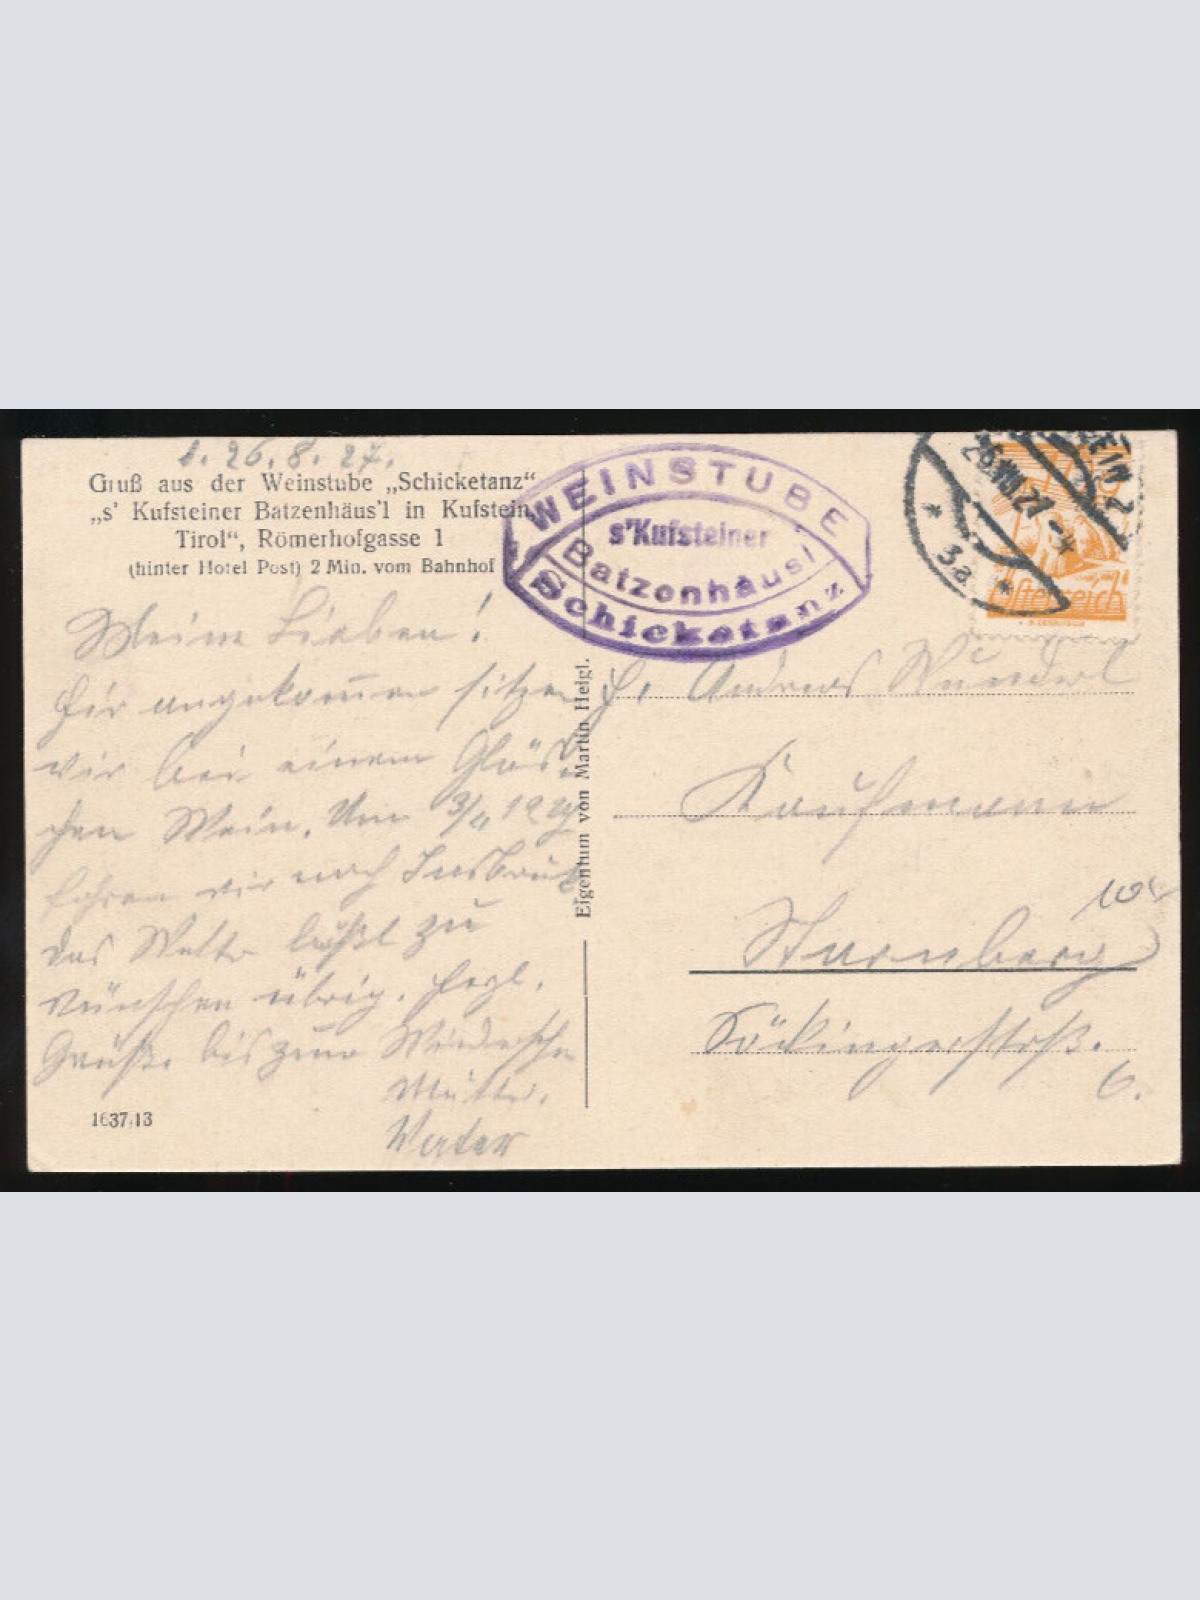 d. 26. 8. 27.
Gruß aus der Weinstube „Schicketanz“
„s' Kufsteiner Batzenhäus'l in Kufstein,
Tirol“, Römerhofgasse 1
(hinter Hotel Post) 2 Min. vom Bahnhof
Meine Lieben!
Hier angekommen sitzen
wir bei einem Gläs-
chen Wein. Um 3/4 12 Uhr
fahren wir nach Innsbruck
das Wetter läßt zu
wünschen übrig. Herzl.
Grüße bis zum
Mutter.
1637,13
Eigentum von Martin Heigl.
WEINSTUBE
s'Kufsteiner
Batzenhäusl
Schicketanz
26.VIII.27
3a
Österreich
H. Andreas Wunderl
Kaufmann
Starnberg
Söckingerstrß.
6.